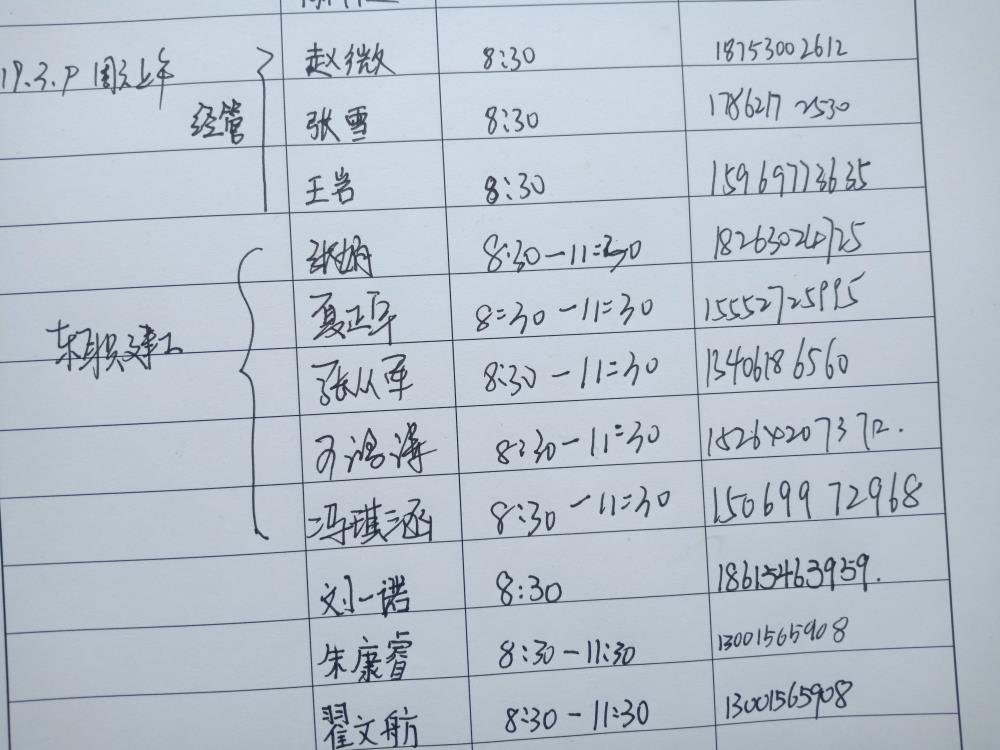 赵微 8:30 18753002612
19.3.9 周六上午
经管 张雪 8:30 17862172530
王岩 8:30 15969773635
张娟 8:30-11:30 18263024725
夏正军 8:30-11:30 15552725995
东职建工
张从军 8:30-11:30 13406186560
8:30-11:30 15264207372.
冯琪涵 8:30-11:30 15069972968
刘一诺 8:30 18615463959.
朱康睿 8:30-11:30 13001565908
翟文航 8:30-11:30 13001565908